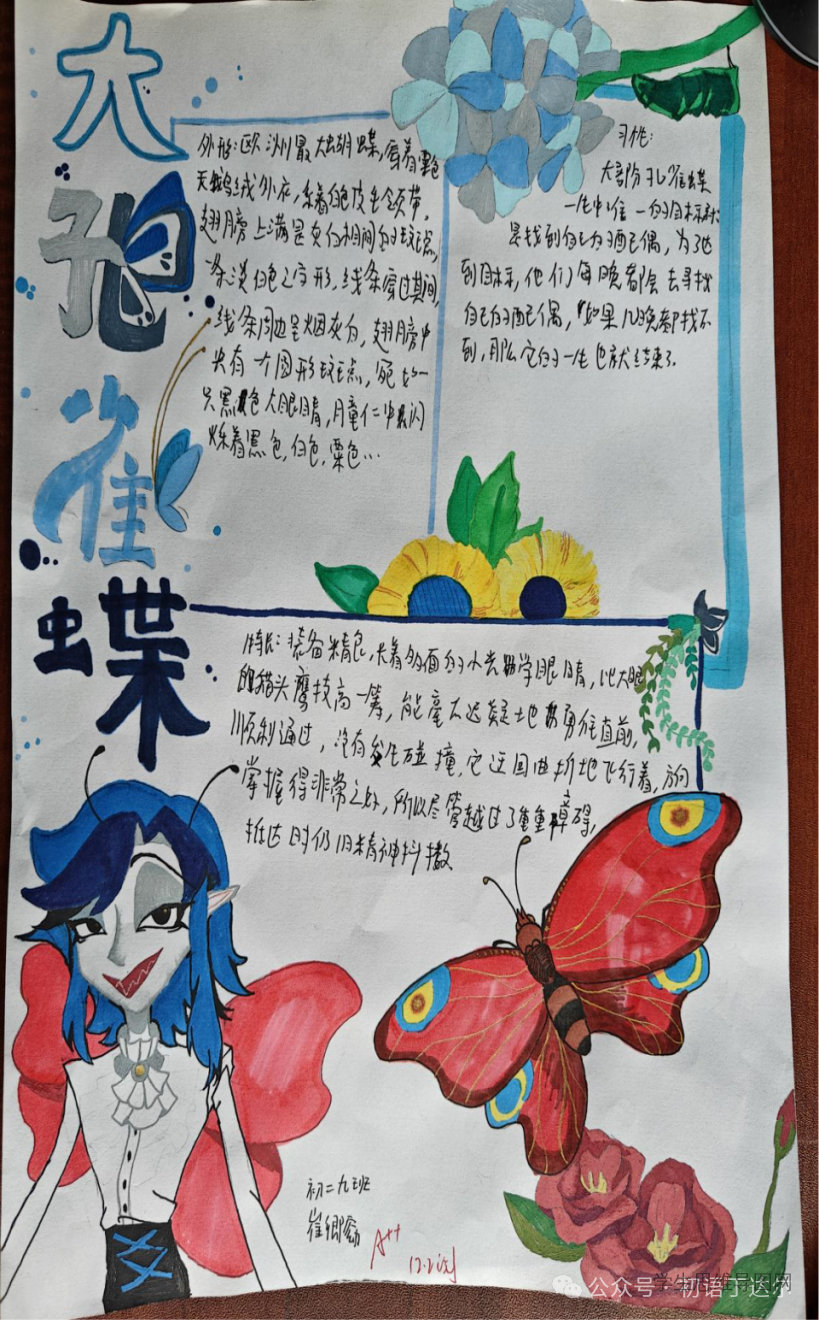 大孔雀蝶
外形:欧洲最大蝴蝶,穿着栗色
天鹅绒外衣,系着白色皮毛领带,
翅膀上满是灰白相间的斑点,
一条淡白色之字形线条穿过其间,
线条周边呈烟灰白,翅膀中
央有一个圆形斑点,宛如一
只黑色大眼睛,瞳仁中闪
烁着黑色,白色,栗色…
习性:
大部分孔雀蝶
一生中唯一的目标就
是找到自己的配偶,为了达
到目标,他们每晚都会去寻找
自己的配偶,如果几晚都找不
到,那么它的一生也就结束了
特长:装备精良,长着多面的小光学眼睛,比大眼
的猫头鹰技高一筹,能毫不迟疑地勇往直前,
顺利通过,没有发生碰撞,它迂回曲折地飞行着,方向
掌握得非常之好,所以尽管越过了重重障碍,
抵达时仍旧精神抖擞
初二九班
A++
公众号·初语丁达尔